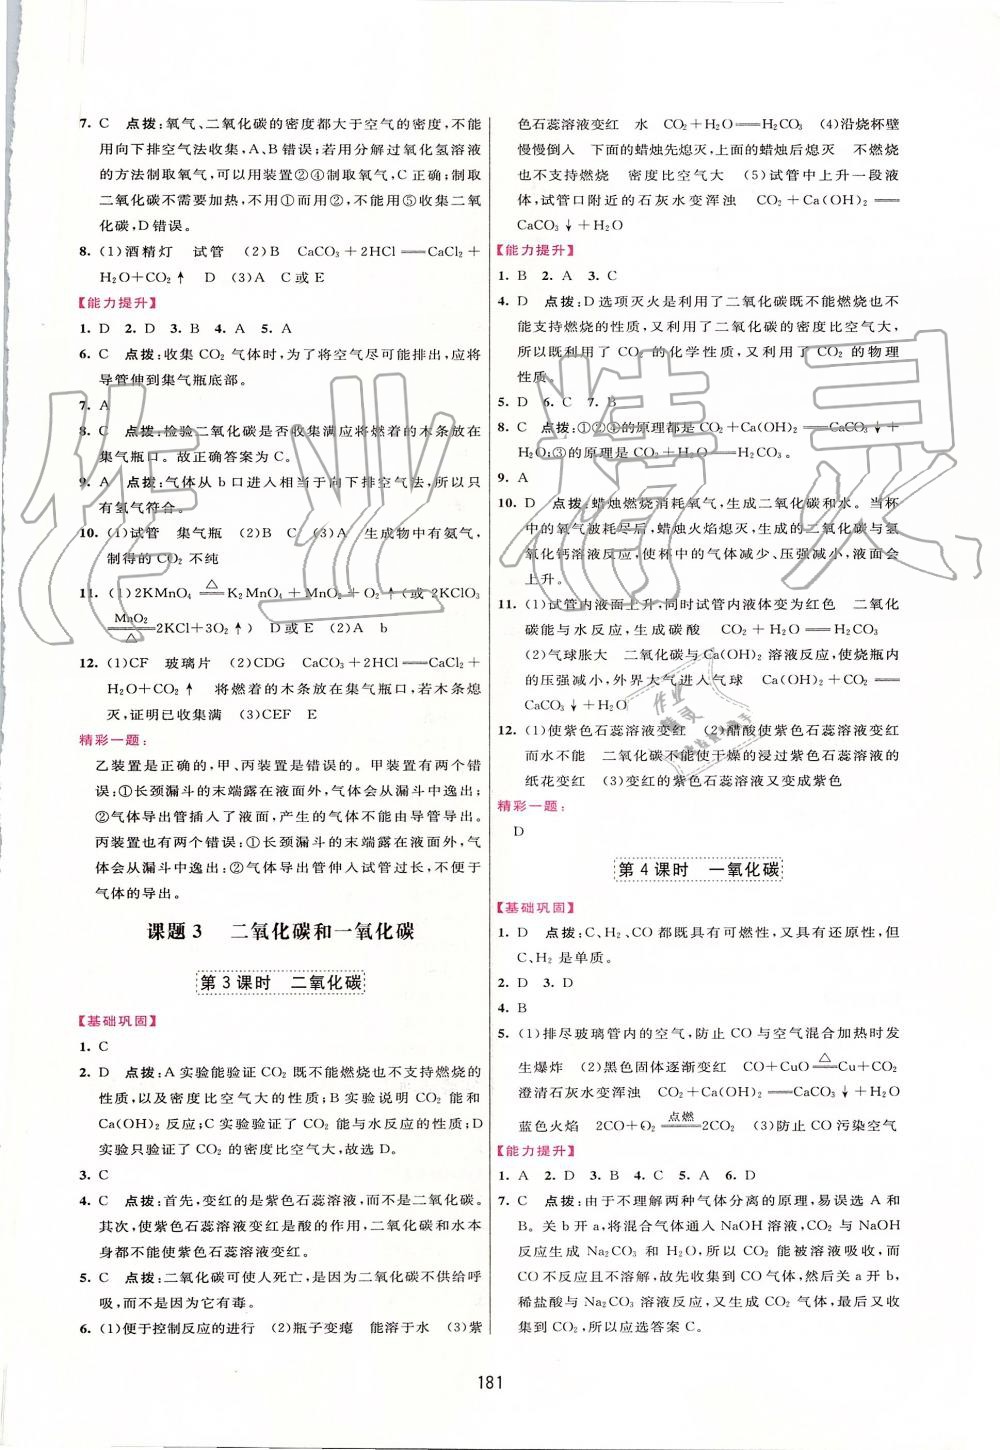 7. C　点拨:氧气、二氧化碳的密度都大于空气的密度,不能
用向下排空气法收集,A、B错误;若用分解过氧化氢溶液
的方法制取氧气,可以用装置②④制取氧气,C正确;制取
二氧化碳不需要加热,不用①而用②,不能用⑤收集二氧
化碳,D错误。
8. (1)酒精灯　试管　(2)B　CaCO₃＋2HCl══CaCl₂＋
H₂O＋CO₂↑　D　(3)A　C或E
【能力提升】
1. D　2. D　3. B　4. A　5. A
6. C　点拨:收集CO₂气体时,为了将空气尽可能排出,应将
导管伸到集气瓶底部。
7. A
8. C　点拨:检验二氧化碳是否收集满应将燃着的木条放在
集气瓶口。故正确答案为C。
9. A　点拨:气体从b口进入相当于向下排空气法,所以只
有氢气符合。
10. (1)试管　集气瓶　(2)B　C　(3)A　生成物中有氨气,
制得的CO₂不纯
11. (1)2KMnO₄ △══ K₂MnO₄＋MnO₂＋O₂↑(或2KClO₃
MnO₂══△ 2KCl＋3O₂↑)　D或E　(2)A　b
12. (1)CF　玻璃片　(2)CDG　CaCO₃＋2HCl══CaCl₂＋
H₂O＋CO₂↑　将燃着的木条放在集气瓶口,若木条熄
灭,证明已收集满　(3)CEF　E
精彩一题:
乙装置是正确的,甲、丙装置是错误的。甲装置有两个错
误:①长颈漏斗的末端露在液面外,气体会从漏斗中逸出;
②气体导出管插入了液面,产生的气体不能由导管导出。
丙装置也有两个错误:①长颈漏斗的末端露在液面外,气
体会从漏斗中逸出;②气体导出管伸入试管过长,不便于
气体的导出。
课题3　二氧化碳和一氧化碳
第3课时　二氧化碳
【基础巩固】
1. C
2. D　点拨:A实验能验证CO₂既不能燃烧也不支持燃烧的
性质,以及密度比空气大的性质;B实验说明CO₂能和
Ca(OH)₂反应;C实验验证了CO₂能与水反应的性质;D
实验只验证了CO₂的密度比空气大,故选D。
3. C
4. C　点拨:首先,变红的是紫色石蕊溶液,而不是二氧化碳。
其次,使紫色石蕊溶液变红是酸的作用,二氧化碳和水本
身都不能使紫色石蕊溶液变红。
5. C　点拨:二氧化碳可使人死亡,是因为二氧化碳不供给呼
吸,而不是因为它有毒。
6. (1)便于控制反应的进行　(2)瓶子变瘪　能溶于水　(3)紫
色石蕊溶液变红　水　CO₂＋H₂O══H₂CO₃　(4)沿烧杯壁
慢慢倒入　下面的蜡烛先熄灭,上面的蜡烛后熄灭　不燃烧
也不支持燃烧　密度比空气大　(5)试管中上升一段液
体,试管口附近的石灰水变浑浊　CO₂＋Ca(OH)₂══
CaCO₃↓＋H₂O
【能力提升】
1. B　2. A　3. C
4. D　点拨:D选项灭火是利用了二氧化碳既不能燃烧也不
能支持燃烧的性质,又利用了二氧化碳的密度比空气大,
所以既利用了CO₂的化学性质,又利用了CO₂的物理
性质。
5. D　6. C　7. B
8. C　点拨:①②④的原理都是CO₂＋Ca(OH)₂══CaCO₃↓＋
H₂O;③的原理是CO₂＋H₂O══H₂CO₃。
9. A
10. D　点拨:蜡烛燃烧消耗氧气,生成二氧化碳和水。当杯
中的氧气被耗尽后,蜡烛火焰熄灭,生成的二氧化碳与氢
氧化钙溶液反应,使杯中的气体减少、压强减小,液面会
上升。
11. (1)试管内液面上升,同时试管内液体变为红色　二氧化
碳能与水反应,生成碳酸　CO₂＋H₂O══H₂CO₃
(2)气球胀大　二氧化碳与Ca(OH)₂溶液反应,使烧瓶内
的压强减小,外界大气进入气球　CO₂＋Ca(OH)₂══
CaCO₃↓＋H₂O
12. (1)使紫色石蕊溶液变红　(2)醋酸使紫色石蕊溶液变红
而水不能　二氧化碳不能使干燥的浸过紫色石蕊溶液的
纸花变红　(3)变红的紫色石蕊溶液又变成紫色
精彩一题:
D
第4课时　一氧化碳
【基础巩固】
1. D　点拨:C、H₂、CO都既具有可燃性,又具有还原性,但
C、H₂是单质。
2. D　3. D
4. B
5. (1)排尽玻璃管内的空气,防止CO与空气混合加热时发
生爆炸　(2)黑色固体逐渐变红　CO＋CuO △══ Cu＋CO₂
澄清石灰水变浑浊　CO₂＋Ca(OH)₂══CaCO₃↓＋H₂O
蓝色火焰　2CO＋O₂ 点燃══ 2CO₂　(3)防止CO污染空气
【能力提升】
1. A　2. D　3. B　4. C　5. A　6. D
7. C　点拨:由于不理解两种气体分离的原理,易误选A和
B。关b开a,将混合气体通入NaOH溶液,CO₂与NaOH
反应生成Na₂CO₃和H₂O,所以CO₂能被溶液吸收,而
CO不反应且不溶解,故先收集到CO气体,然后关a开b,
稀盐酸与Na₂CO₃溶液反应,又生成CO₂气体,最后又收
集到CO₂,所以应选答案C。
181
作业精灵